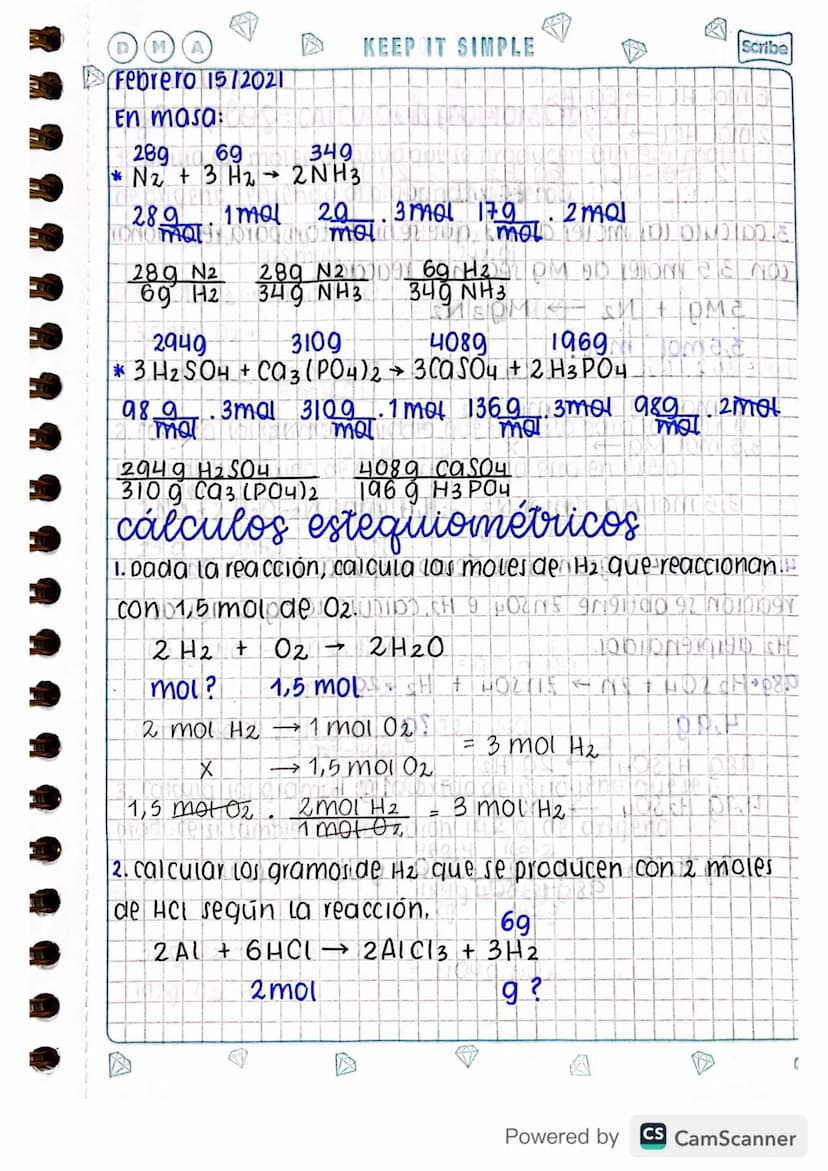 D M A KEEP IT SIMPLE Scribe
Febrero 15/2021
En masa:
28g 6g 34g
* N2 + 3 H2 → 2NH3
28 g/mol . 1mol 2g/mol . 3mol 17g/mol . 2mol
28g N2/6g H2 28g N2/34g NH3 6g H2/34g NH3
294g 310g 408g 196g
* 3H2SO4 + Ca3(PO4)2 → 3CaSO4 + 2H3PO4
98 g/mol . 3mol 310g/mol . 1mol 136g/mol . 3mol 98g/mol . 2mol
294g H2SO4/310 g Ca3(PO4)2 408g CaSO4/196 g H3PO4
cálculos estequiométricos
1. Dada la reacción, calcula las moles de H2 que reaccionan
con 1,5 mol de O2.
2 H2 + O2 → 2H2O
mol? 1,5 mol
2 mol H2 → 1 mol O2
= 3 mol H2
x → 1,5 mol O2
1,5 mol O2 . 2mol H2/1 mol O2 = 3 mol H2
2. calcular los gramos de H2 que se producen con 2 moles
de HCl según la reacción.
6g
2Al + 6HCl → 2AlCl3 + 3H2
2mol g?
Powered by CS CamScanner